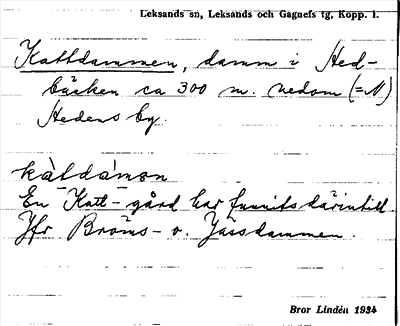 Leksands sn, Leksands och Gagnefs tg, Kopp. l.
Kattdammen, damm i Hed-
bäcken ca 300 m. nedom (= N)
Hedens by.
kàtdámən
En "Katt-gård har funnits därintill
Jfr Bröms- o. Jässdammen.
Bror Lindén 1934